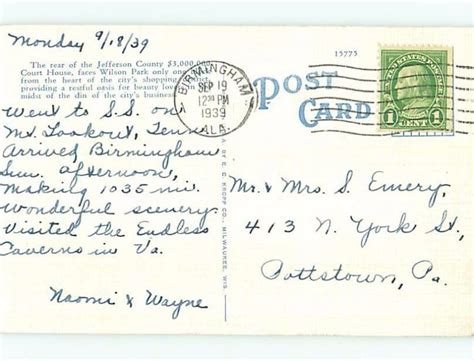 Monday 9/18/39
The rear of the Jefferson County $3,000,000
Court House, faces Wilson Park only one
from the heart of the city's shopping district
providing a restful oasis for beauty lovers in
midst of the din of the city's business
15775
BIRMINGHAM
SEP 19
12 30 PM
1939
ALA.
POST
CARD
UNITED STATES POSTAGE
1 CENT 1
Went to S.S. on
Mt. Lookout, Tenn
Arrived Birmingham
Sun. afternoon,
Making 1035 mi.
Wonderful scenery
Visited the Endless
Caverns in Va.
Naomi & Wayne
E. C. KROPP CO., MILWAUKEE, WIS.
Mr. & Mrs. S. Emery,
413 N. York St,
Pottstown, Pa.